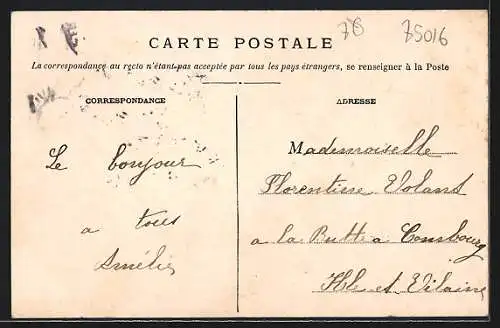 78 75016
CARTE POSTALE
La correspondance au recto n'étant pas acceptée par tous les pays étrangers, se renseigner à la Poste
CORRESPONDANCE
Le bonjour
a tous
Amélie
ADRESSE
Mademoiselle
Florentine Volant
a la Butt a Combourg
Ille et Vilaine